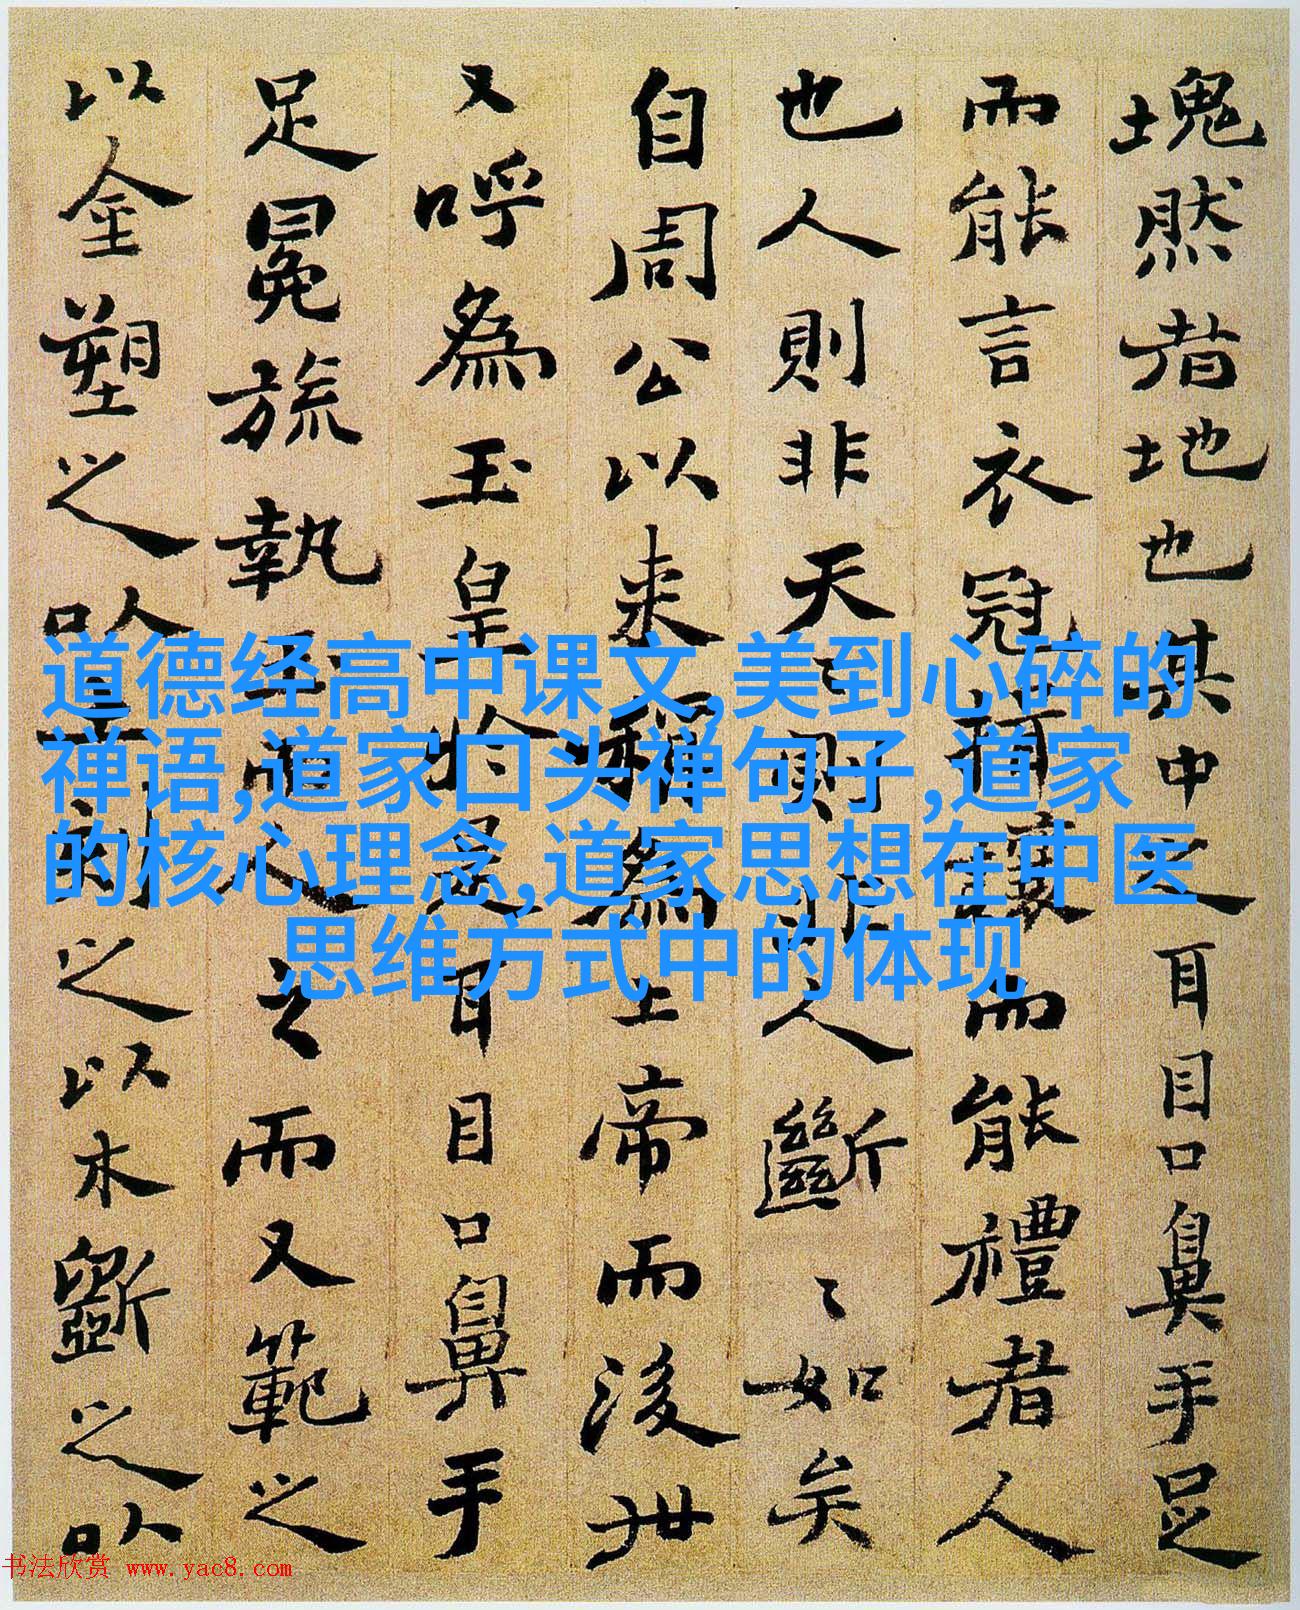 塊然者地也其中之耳目口鼻手足
而能言衣冠揖讓而能禮者人
也人則非天〻則非人斷〻如矣
自周公以来稱為上帝而後世
又呼為玉皇於是耳目口鼻手
足冕旒執玉而人之而又範之
以金塑之以土刻之以木斲之以
道德经高中课文,美到心碎的
禅语,道家口头禅句子,道家
的核心理念,道家思想在中医
思维方式中的体现
书法欣赏 www.yac8.com